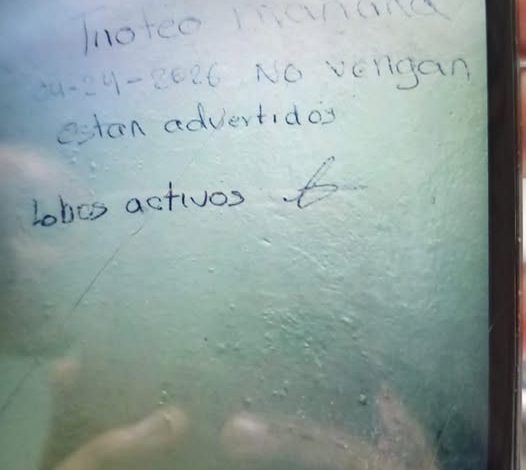 Tiroteo mañana
04-24-2026 No vengan
estan advertidos
Lobos activos